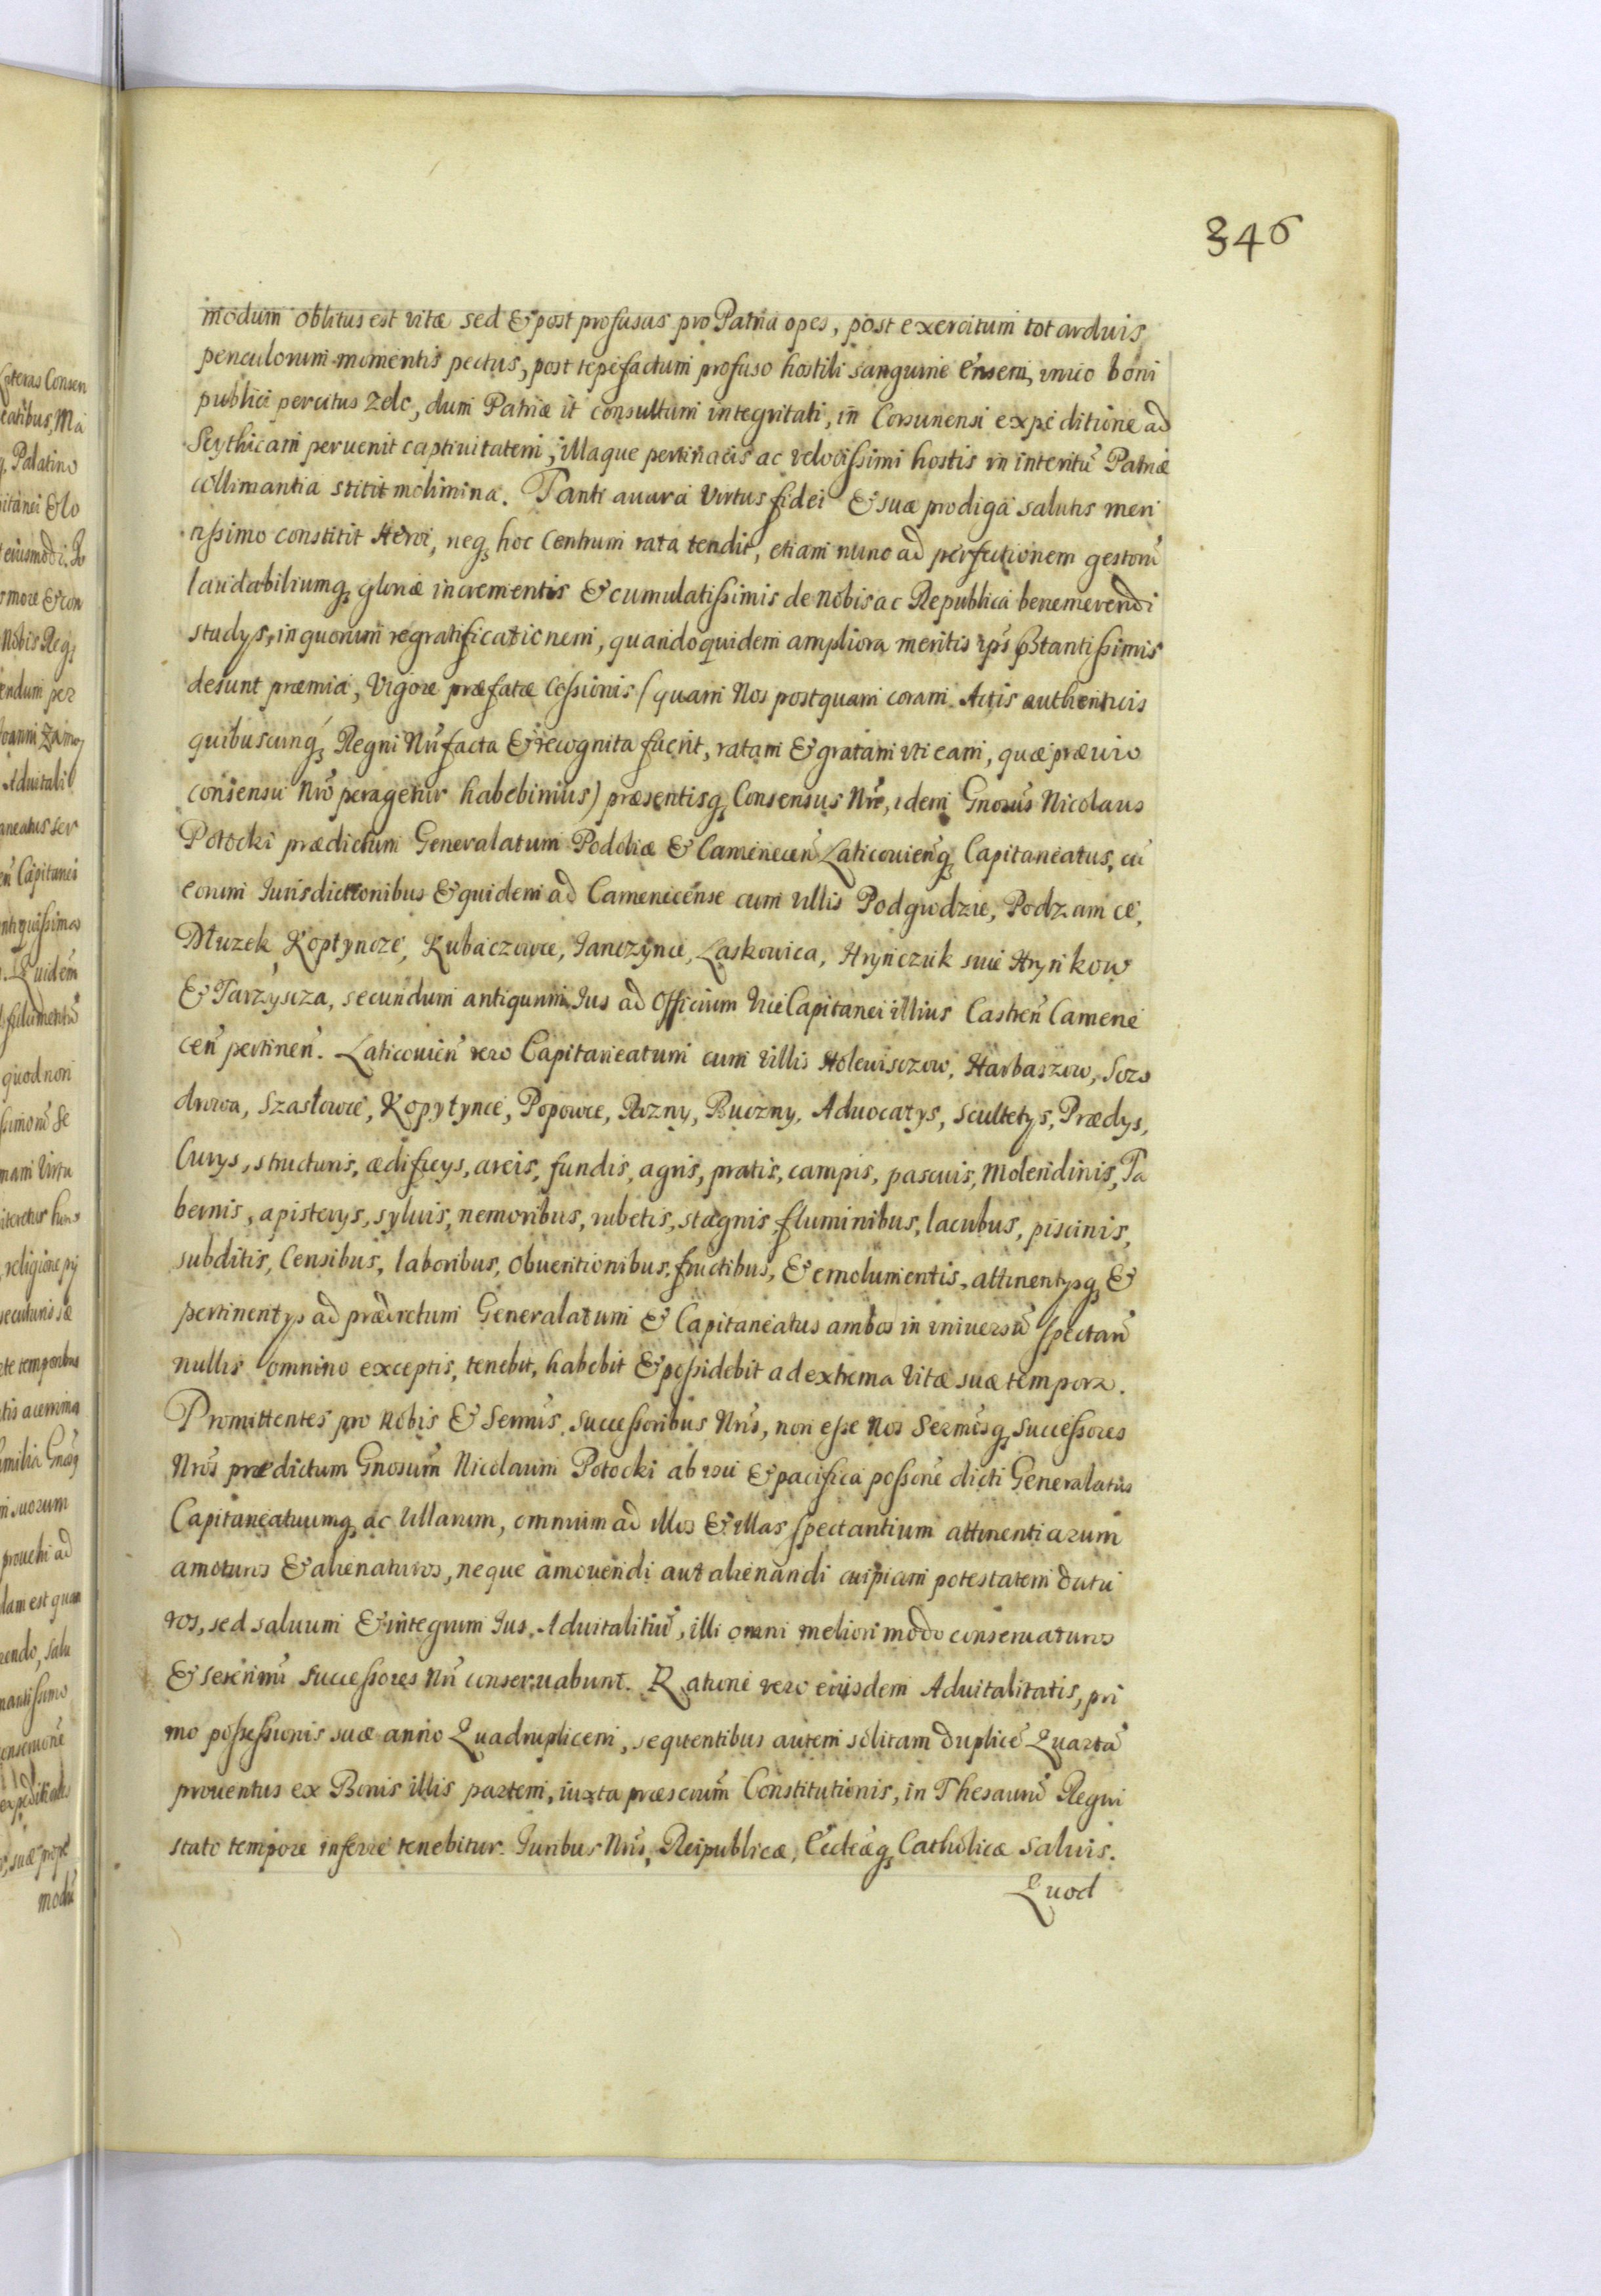 346
modum oblitus est vitæ sed & post profusas pro Patria opes, post exercitum tot arduis
periculorum momentis pectus, post tepefactum profuso hostili sanguine Ensem, unico boni
publici percitus zelo, dum Patriæ it consultum integritati, in Corsunensi expeditione ad
Scythicam peruenit captiuitatem, illaque pertinacis ac velocissimi hostis in interitũ Patriæ
collimantia stitit molimina. Tanti auara Virtus fidei & suæ prodiga salutis meri
tissimo constitit Heroi, neq hoc Centrum rata tendit, etiam nunc ad perfectionem gestorũ
laudabiliumq gloriæ incrementis & cumulatissimis de Nobis ac Republica benemerendi
studys, in quorum regratificationem, quandoquidem ampliora meritis ips præstantissimis
desunt præmia, Vigore præfatæ Cessionis (quam Nos postquam coram Actis authenticis
quibuscunq Regni Nri facta & recognita fuerit, ratam & gratam vti eam, quæ præuio
consensu Nro peragetur habebimus) præsentisq Consensus Nri, idem Gnosus Nicolaus
Potocki prædictum Generalatum Podoliæ & Camenecen Laticouienq Capitaneatus, cũ
eorum Iurisdictionibus & quidem ad Camenecense cum villis Podgrodzie, Podzamce,
Dłuzek Koptyncze, Kubaczowce, Janczynce, Laskowica, Hryńczuk siue Hrynkow
& Tarzyscza, secundum antiquum Ius ad Officium ViceCapitanei illius Castren Camene
cen pertinen. Laticouien vero Capitaneatum cum villis Holewisczow, Harbaszow, Sczo
drowa, Szasłowce, Kopytynce, Popowce, Rozny, Buczny, Aduocatys, Scultetys, Prædys,
Curys, structuris, ædificys, areis, fundis, agris, pratis, campis, pascuis, Molendinis, Ta
bernis, apisterys, syluis, nemoribus, rubetis, stagnis fluminibus, lacubus, piscinis,
subditis, Censibus, laboribus, obuentionibus, fructibus, & emolumentis, attinentysq &
pertinentys ad prædictum Generalatum & Capitaneatus ambos in vniuersũ spectan
nullis omnino exceptis, tenebit, habebit & possidebit ad extrema Vitæ suæ tempora.
Promittentes pro Nobis & Sermis Successoribus Nris, non esse Nos Sermosq Successores
Nros prædictum Gnosum Nicolaum Potocki ab usu & pacifica possone dicti Generalatus
Capitaneatuumq ac Villarum, omnium ad illos & illas spectantium attinentiarum
amoturos & alienaturos, neque amouendi aut alienandi cuipiam potestatem datu
ros, sed saluum & integrum Ius Aduitalitiũ, illi omni meliori modo conseruaturos
& serenimi Successores Nri conseruabunt. Ratione vero eiusdem Aduitalitatis, pri
mo possessionis suæ anno Quadruplicem, sequentibus autem solitam duplicẽ Quartã
prouentus ex Bonis illis partem, iuxta præscrium Constitutionis, in Thesaurũ Regni
stato tempore inferre tenebitur. Iuribus Nris, Reipublicæ, Eccleæq Catholicæ saluis.
Quod